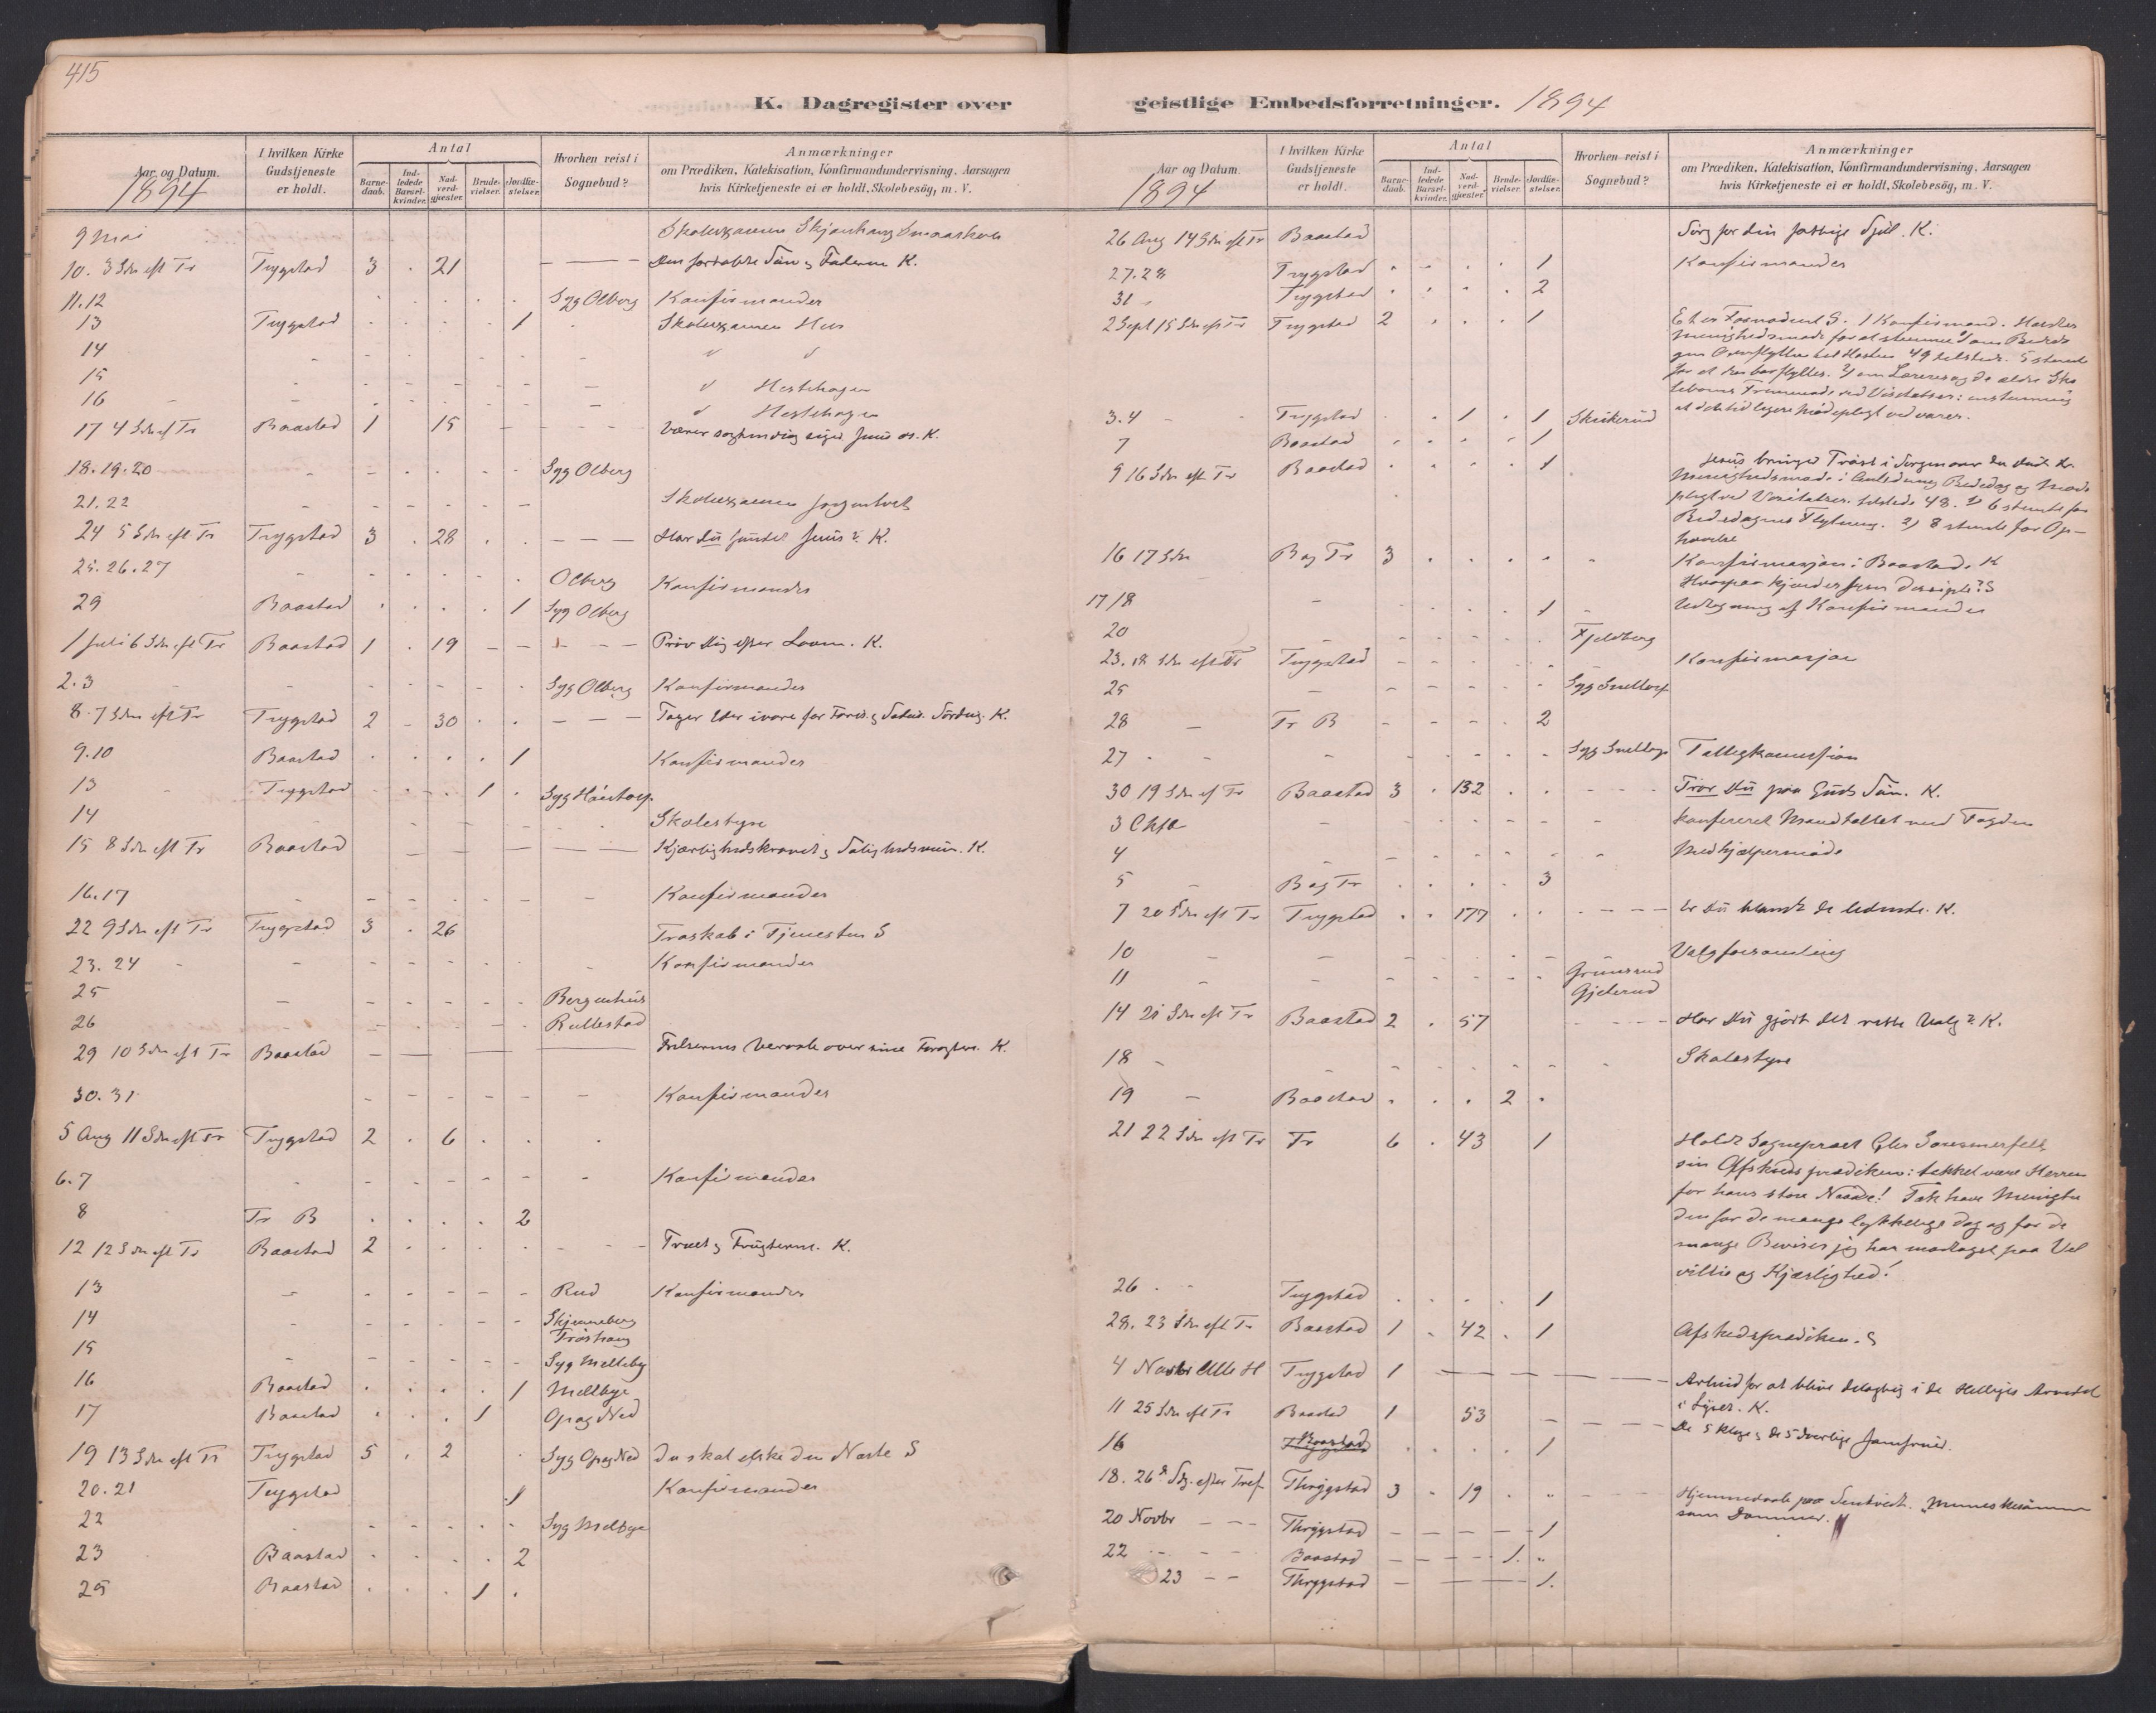 415
K. Dagregister over
Aar og Datum.
1894
I hvilken Kirke Gudstjeneste er holdt.
Antal
Barnedaab.
Indledede Barselkvinder.
Nadverdgjæster.
Brudevielser.
Jordfæstelser.
Hvorhen reist i Sognebud?
Anmærkninger
om Prædiken, Katekisation, Konfirmandundervisning, Aarsagen
hvis Kirketjeneste ei er holdt, Skolebesøg, m. V.
9 Mai Skolexamen Skjønhaug Smaaskole
10. 3 Sdn eft Tr Trygstad 3 . 21 — — — Den fortabte Søn & Faderen K.
11.12 Syg Olberg Konfirmander
13 Trygstad 1 Skolexamen Hus
14 " "
15 " Hestehagen
16 " Hestehagen
17 4 Sdn ef Tr Baastad 1 15 Værer K.
18.19.20 Syg Olberg
21.22 Skolexamen
24 5 Sdn eft Tr Trygstad 3 . 28 — — — Har Du fundet Jesus? K.
25.26.27 Olberg Konfirmander
29 Baastad 1 Syg Olberg
1 Juli 6 Sdn eft Tr Baastad 1 . 19 — — Prøv dig efter Loven. K.
2.3 Syg Olberg Konfirmander
8. 7 Sdn eft Tr Trygstad 2 – 30 — — — Tager Eder ivare for K.
9.10 Baastad 1 Konfirmander
13 Trygstad 1 Syg Haistorp
14 Skolestyre
15 8 Sdn eft Tr Baastad — — — Kjærlighedskravet & K.
16.17 Konfirmander
22 9 Sdn eft Tr Trygstad 3 . 26 Troskab i Tjenesten S
23.24 Konfirmander
25 Bergenhus
26 Rullestad
29 10 Sdn eft Tr Baastad — — Frelserens Veraab over sine K.
30.31 Konfirmander
5 Aug 11 Sdn eft Tr Trygstad 2 . 6
6.7 Konfirmander
8 Tr B 2
12 12 Sdn eft Tr Baastad 2 Træet & Frugterne. K.
13 Rud Konfirmander
14 Skjenneberg
Frøshaug
15 Syg Melleby
16 Baastad 1 Mellbye
17 Baastad 1 Op og Ned
19 13 Sdn eft Tr Trygstad 5 . 2 Syg Op og Ned Du skal elske din Næste S
20.21 Trygstad 1 Konfirmander
22 Syg Melbye
23 Baastad 2
25 Baastad 1
geistlige Embedsforretninger. 1894
Aar og Datum.
1894
I hvilken Kirke Gudstjeneste er holdt.
Antal
Barnedaab.
Indledede Barselkvinder.
Nadverdgjæster.
Brudevielser.
Jordfæstelser.
Hvorhen reist i Sognebud?
Anmærkninger
om Prædiken, Katekisation, Konfirmandundervisning, Aarsagen
hvis Kirketjeneste ei er holdt, Skolebesøg, m. V.
26 Aug 14 Sdn eft Tr Baastad Sørg for din fattige Sjæl. K.
27.28 Trygstad 1 Konfirmander
31 Trygstad 2
2 Sept 15 Sdn eft Tr Trygstad 2 1 Et er Fornødent S. 1 Konfirmand. Holdtes
Menighedsmøde for at stemme 1) om Bededa
gens Overflyttelse til Høsten 49 tilstede. 5 stemte
for at den bør flyttes. 2) om Læreres og de ældre Sko
lebørns Fremmøde ved Visitatser:
3.4 Trygstad 1 . 1 Skukerud
7 Baastad 1
9 16 Sdn eft Tr Baastad 1 Jesus bringer Trøst i Sorgen over K.
Menighedsmøde i Anledning Bededag og Møde
pligt ved Visitatser. tilstede 48. 1) 6 stemte for
Bededagens Flytning. 2) 8 stemte for Op-
hævelse
16 17 Sdn B og Tr 3 Konfirmasjon i Baastad. K
Hvorpaa kjendes Jesu Disciple? S
17/18 1 Udtagning af Konfirmander
20 Fjeldberg
23. 18 Sdn eft Tr Trygstad Konfirmasjon
25 Syg Sneltorp
28 Tr B 2
27 Syg Tællegkomission
30 19 Sdn ef Tr Baastad 3 . 132 Tror Du paa Guds Søn. K.
3 Oktb konfereret Mandtallet med Fogden
4 Medhjælpermøde
5 B og Tr 3
7 20 Sdn eft Tr Trygstad 177 — — — Er Du blandt de K.
10 Valgforsamling
11 Grimsrud
Gjelerud
14 21 Sdn eft Tr Baastad 2 . 57 Har Du gjort det rette Valg? K.
18 Skolestyre
19 Baastad 2
21 22 Sdn eft Tr Tr 6 . 43 1 Holdt Sogneprest
sin Afskedsprædiken: takket være Herren
for hans store Naade! Tak have Menighe
den for de mange lykkelige dage og for de
mange Beviser jeg har modtaget paa Vel
villie og Kjærlighed!
26 Trygstad 1
28. 23 Sdn eft Tr Baastad 1 . 42 . 1 Afskedsprædiken. S
4 Novbr Alle H Trygstad 1 — — — Arbeid for at blive delagtig i de Helliges Arvedel
i Lyset. K.
11 25 Sdn eft Tr Baastad 1 53 — — — De 5 kloge & de 5 daarlige Jomfruer.
16 1
18. 26de Sdg. efter Tref. Thrygstad 3 . 19 Hjemmedaab paa "Menneskesønnen
som Dommer."
20 Novbr Thrygstad 1
22 Baastad 1.
23 Thrygstad 1.